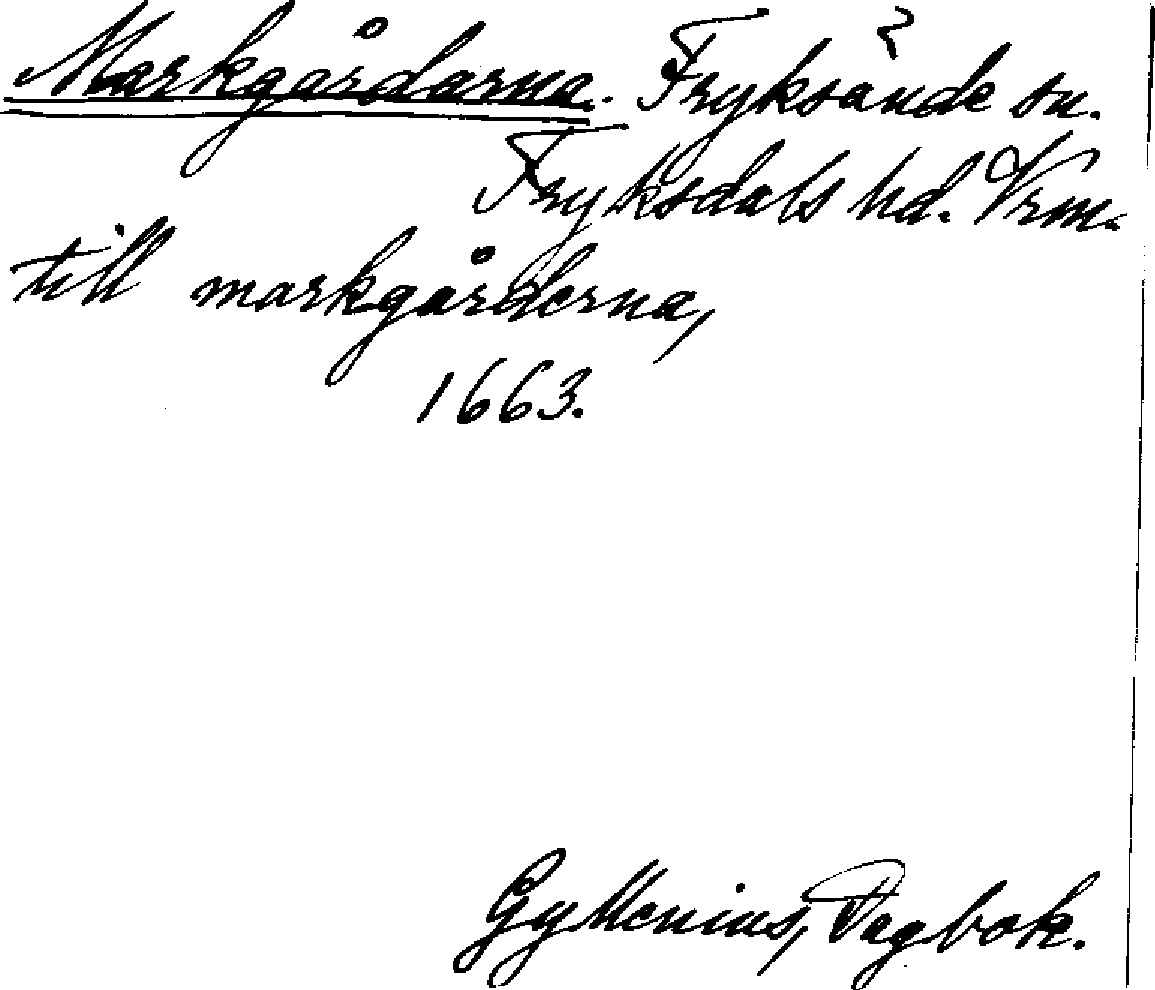 Markgårdarna. Fryksände sn.
Fryksdals hd. Vrm.
till markgårderna,
1663.
Gyllenius, Dagbok.